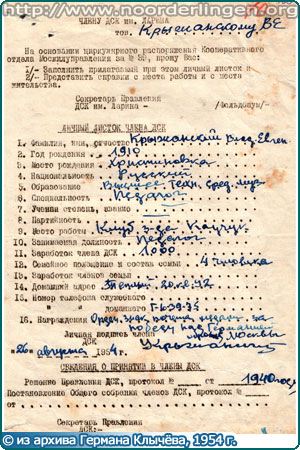 www.noorderlingen.org
ЧЛЕНУ ДСК им. ЛАРИНА
тов. Крыжанскому В Е
На основании циркулярного распоряжения Кооперативного
отдела Мосжилуправления за № 89, прошу Вас:
1/- Заполнить прилагаемый при этом личный листок и
2/- Представить справки с места работы и с места
жительства.
Секретарь Правления
ДСК им. Ларина-
ЛИЧНЫЙ ЛИСТОК ЧЛЕНА ДСК
1. Фамилия, имя, отчество Крыжанский Влад. Евген.
2. Год рождения 1910
3. Место рождения Христиновка
4. Национальность Русский
5. Образование Высшее техн. сред. муз.
6. Специальность Педагог
7. Ученая степень, звание
8. Партийность
9. Место работы Клуб з-да Каучук
10. Занимаемая должность Педагог
11. Заработок члена ДСК 1000
12. Семейное положение и состав семьи 4 человека
13. Заработок членов семьи
14. Домашний адрес
15. Номер телефона служебного
домашнего Г-6-39-35
16. Награждения медаль за
победу над Германией
Личная подпись члена
ДСК Крыжанский
"26" августа 1954 г.
СВЕДЕНИЯ О ПРИНЯТИИ В ЧЛЕНЫ ДСК
Решение Правления ДСК, протокол № от 1940 год
Постановление Общего собрания членов ДСК, протокол №
от
Секретарь Правления
ДСК:-
© из архива Германа Клычёва, 1954 г.